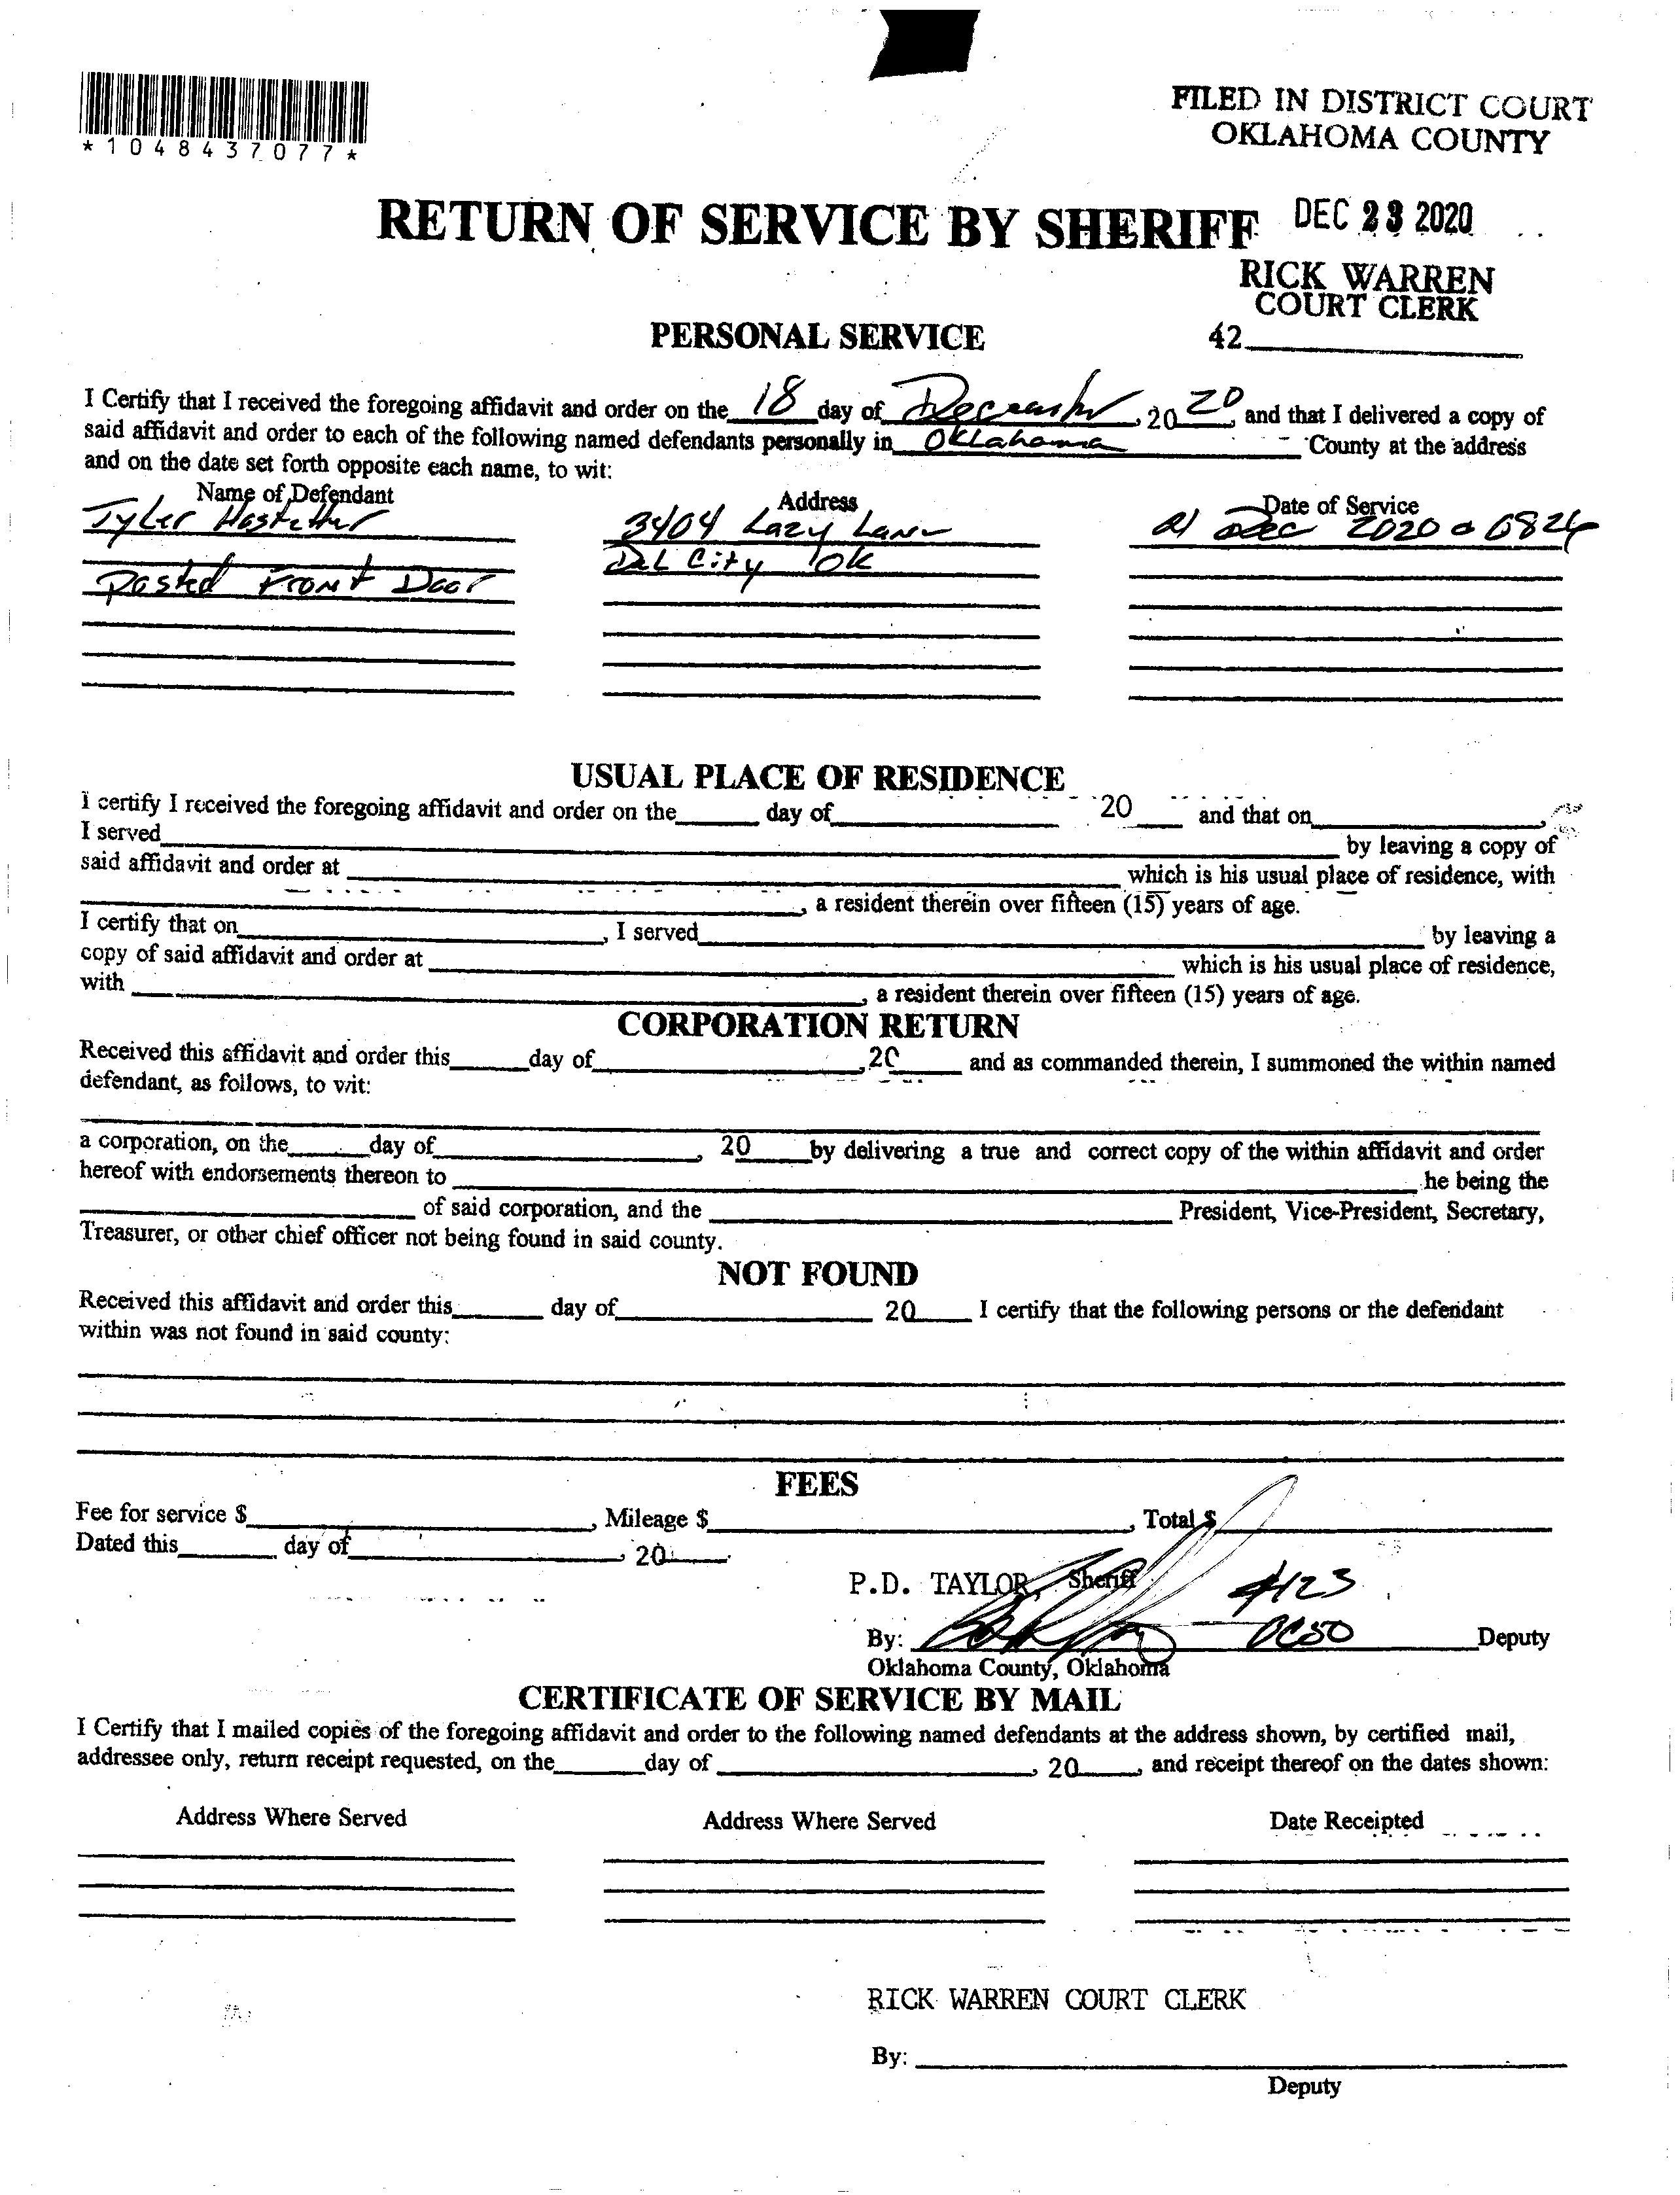 *1048437077*
FILED IN DISTRICT COURT
OKLAHOMA COUNTY
RETURN OF SERVICE BY SHERIFF
DEC 23 2020
RICK WARREN
COURT CLERK
PERSONAL SERVICE
42
I Certify that I received the foregoing affidavit and order on the 18 day of December, 20 20, and that I delivered a copy of
said affidavit and order to each of the following named defendants personally in Oklahoma County at the address
and on the date set forth opposite each name, to wit:
Name of Defendant Address Date of Service
Tyler Hostetter 3404 Lazy Lane 21 Dec 2020 @ 0826
Posted Front Door Del City OK
USUAL PLACE OF RESIDENCE
I certify I received the foregoing affidavit and order on the day of 20 and that on ,
I served by leaving a copy of
said affidavit and order at which is his usual place of residence, with
, a resident therein over fifteen (15) years of age.
I certify that on , I served by leaving a
copy of said affidavit and order at which is his usual place of residence,
with , a resident therein over fifteen (15) years of age.
CORPORATION RETURN
Received this affidavit and order this day of , 20 and as commanded therein, I summoned the within named
defendant, as follows, to wit:
a corporation, on the day of , 20 by delivering a true and correct copy of the within affidavit and order
hereof with endorsements thereon to he being the
of said corporation, and the President, Vice-President, Secretary,
Treasurer, or other chief officer not being found in said county.
NOT FOUND
Received this affidavit and order this day of 20 I certify that the following persons or the defendant
within was not found in said county:
FEES
Fee for service $ , Mileage $ , Total $
Dated this day of , 20
P.D. TAYLOR, Sheriff #123
By: OCSO Deputy
Oklahoma County, Oklahoma
CERTIFICATE OF SERVICE BY MAIL
I Certify that I mailed copies of the foregoing affidavit and order to the following named defendants at the address shown, by certified mail,
addressee only, return receipt requested, on the day of , 20 , and receipt thereof on the dates shown:
Address Where Served Address Where Served Date Receipted
RICK WARREN COURT CLERK
By:
Deputy